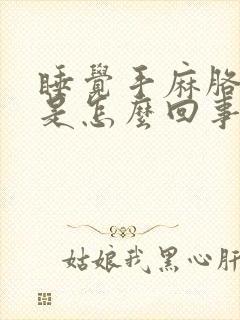 睡覺手麻胳
是怎麼回事
姑娘我黑心肝